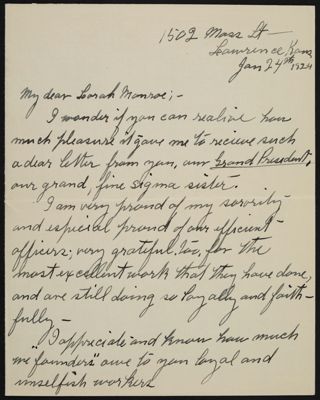 1502 Mass St -
Lawrence, Kans
Jan 24th 1924
My dear Sarah Monroe; -
I wonder if you can realize how
much pleasure it gave me to recieve such
a dear letter from you, our Grand President,
our grand, fine Sigma sister.
I am very proud of my sorority
and especial proud of our efficient
officers; very grateful, too, for the
most excellent work that they have done,
and are still doing so loyally and faith-
fully -
I appreciate and know how much
we "founders" owe to you loyal and
unselfish workers